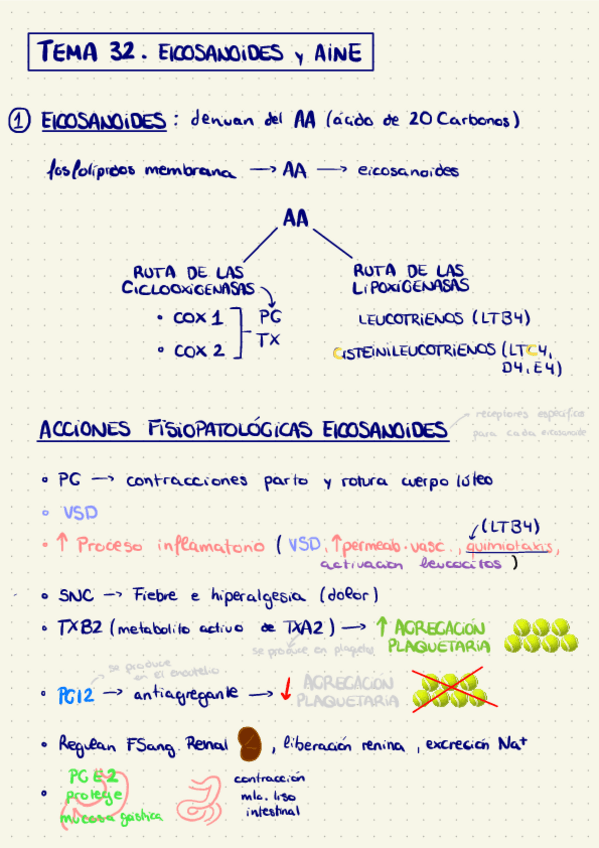 TEMA 32. EICOSANOIDES y AINE
1 EICOSANOIDES: derivan del AA (ácido de 20 Carbonos)
fosfolípidos membrana → AA → eicosanoides
AA
RUTA DE LAS CICLOOXIGENASAS
RUTA DE LAS LIPOXIGENASAS
• COX 1
• COX 2
PG
TX
LEUCOTRIENOS (LTB4)
CISTEINILEUCOTRIENOS (LTC4,
D4, E4)
receptores específicos
para cada eicosanoide
ACCIONES FISIOPATOLÓGICAS EICOSANOIDES
• PG → contracciones parto y rotura cuerpo lúteo
• VSD
(LTB4)
• ↑ Proceso inflamatorio (VSD, ↑permeab. vasc, quimiotaxis,
activación leucocitos)
• SNC → Fiebre e hiperalgesia (dolor)
• TXB2 (metabolito activo de TXA2) → ↑ AGREGACIÓN
PLAQUETARIA
se produce en plaquetas
se produce
en el endotelio
• PGI2 → antiagregante → ↓ AGREGACIÓN
PLAQUETARIA
• Regulan FSang. Renal, liberación renina, excreción Na+
• PGE2
protege
mucosa gástrica
contracción
mlc. liso
intestinal